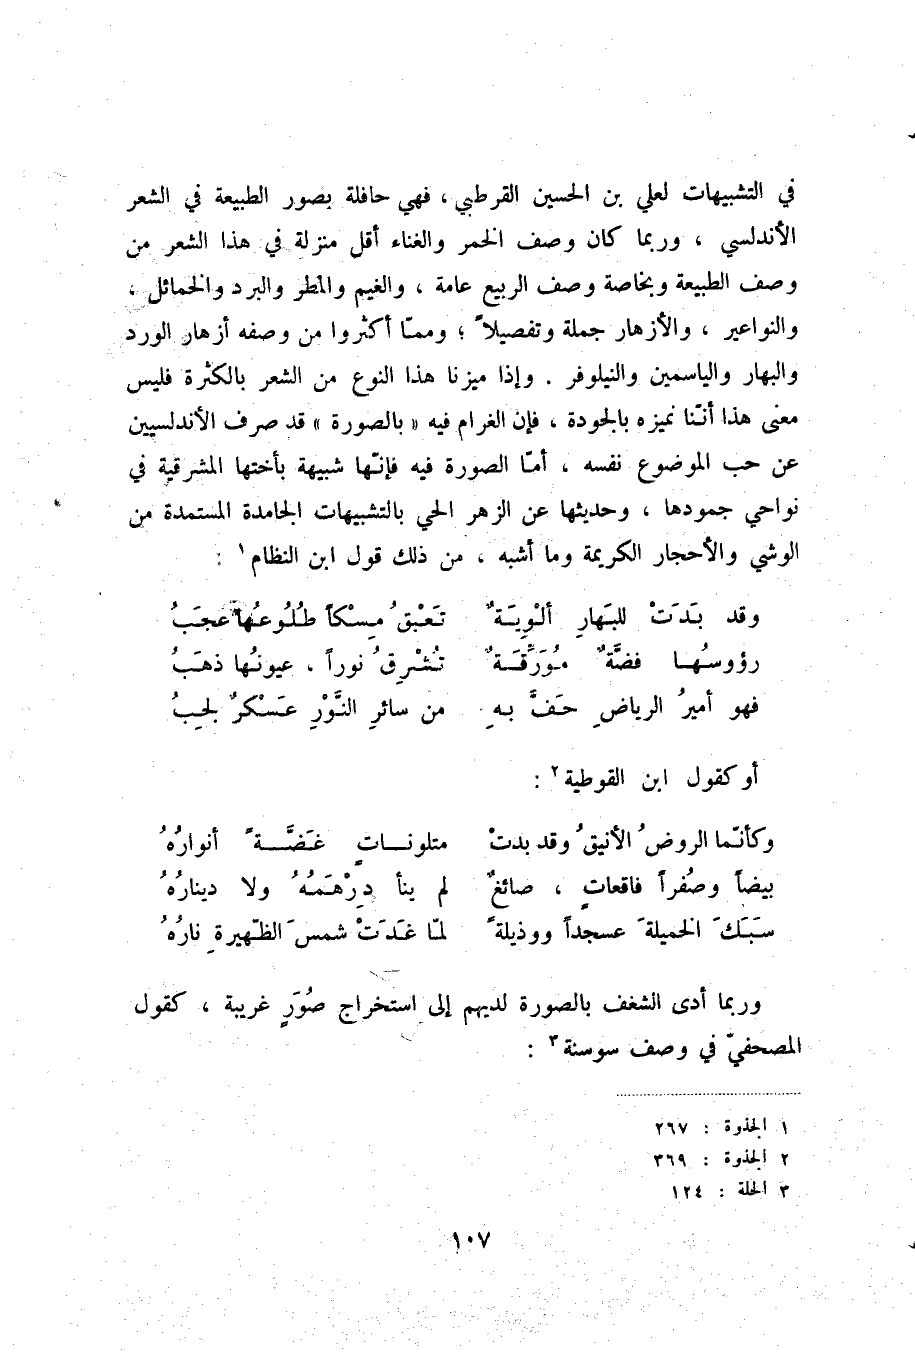 في التشبيهات لعلي بن الحسين القرطبي ، فهي حافلة بصور الطبيعة في الشعر
الأندلسي ، وربما كان وصف الخمر والغناء أقل منزلة في هذا الشعر من
وصف الطبيعة وبخاصة وصف الربيع عامة ، والغيم والمطر والبرد والخمائل ،
والنواعير ، والأزهار جملة وتفصيلاً ؛ وممّا أكثروا من وصفه أزهار الورد
والبهار والياسمين والنيلوفر . وإذا ميزنا هذا النوع من الشعر بالكثرة فليس
معنى هذا أنّنا نميزه بالجودة ، فإن الغرام فيه « بالصورة » قد صرف الأندلسيين
عن حب الموضوع نفسه ، أمّا الصورة فيه فإنّها شبيهة بأختها المشرقية في
نواحي جمودها ، وحديثها عن الزهر الحي بالتشبيهات الجامدة المستمدة من
الوشي والأحجار الكريمة وما أشبه ، من ذلك قول ابن النظام ١ :
وقد بَدَتْ للبَهارِ ألْوِيَةٌ تَعَبْقُ مِسْكاً طُلُوعُها عجَبُ
رؤوسُها فضَّةٌ مُوَرَّقَةٌ تُشْرِقُ نوراً ، عيونُها ذهَبُ
فهو أميرُ الرياضِ حَفَّ بهِ من سائرِ النَّوْرِ عَسْكرٌ لجِبُ
أو كقول ابن القوطية ٢ :
وكأنّما الروضُ الأنيقُ وقد بدتْ متلوناتٍ غَضَّةً أنوارُهُ
بيضاً وصُفراً فاقعاتٍ ، صائغٌ لم ينأ دِرْهَمُهُ ولا دينارُهُ
سَبَكَ الخميلةَ عسجداً ووذيلةً لمّا غَدَتْ شمسَ الظّهيرةِ نارُهُ
وربما أدى الشغف بالصورة لديهم إلى استخراج صُوَرٍ غريبة ، كقول
المصحفيّ في وصف سوسنة ٣ :
١ الجذوة : ٢٦٧
٢ الجذوة : ٣٦٩
٣ الحلة : ١٢٤
١٠٧